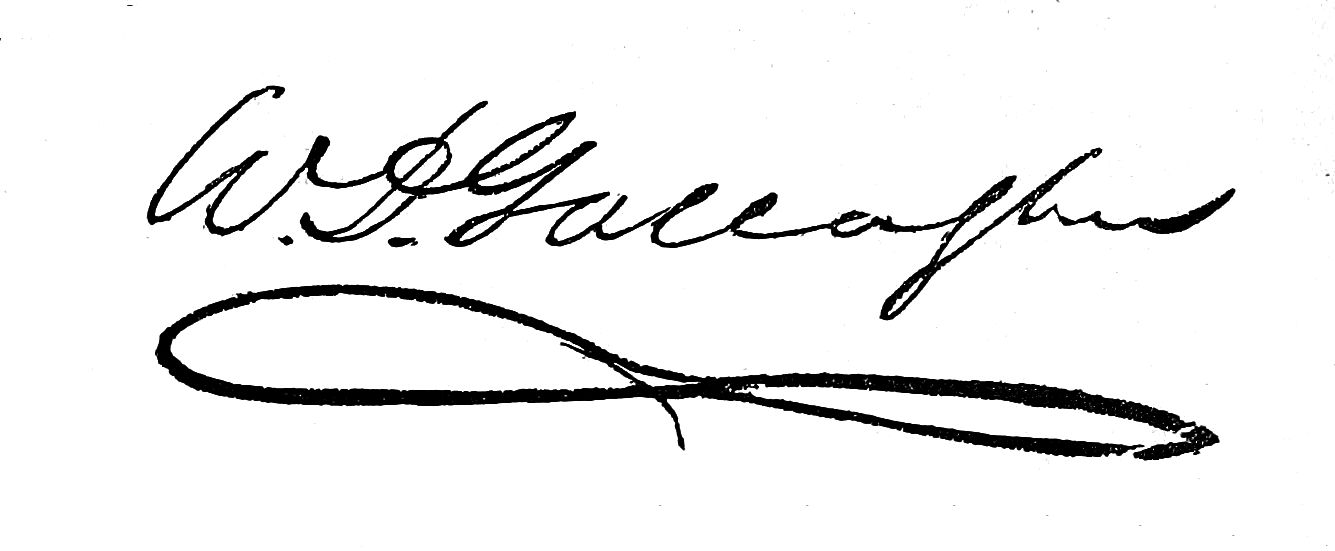 W. D. Gallagher